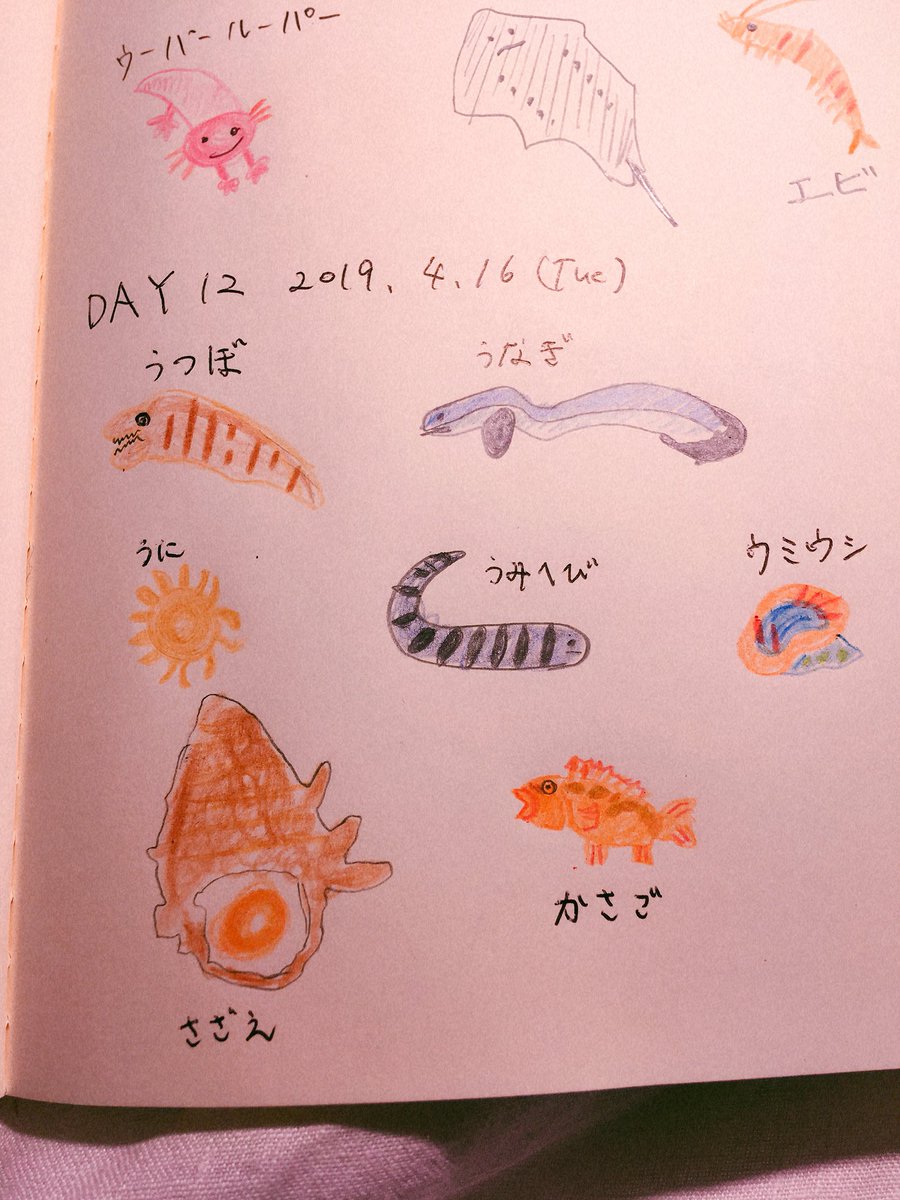 ウーパールーパー
エビ
DAY 12 2019.4.16(Tue)
うつぼ
うなぎ
うに
うみへび
ウミウシ
かさご
さざえ